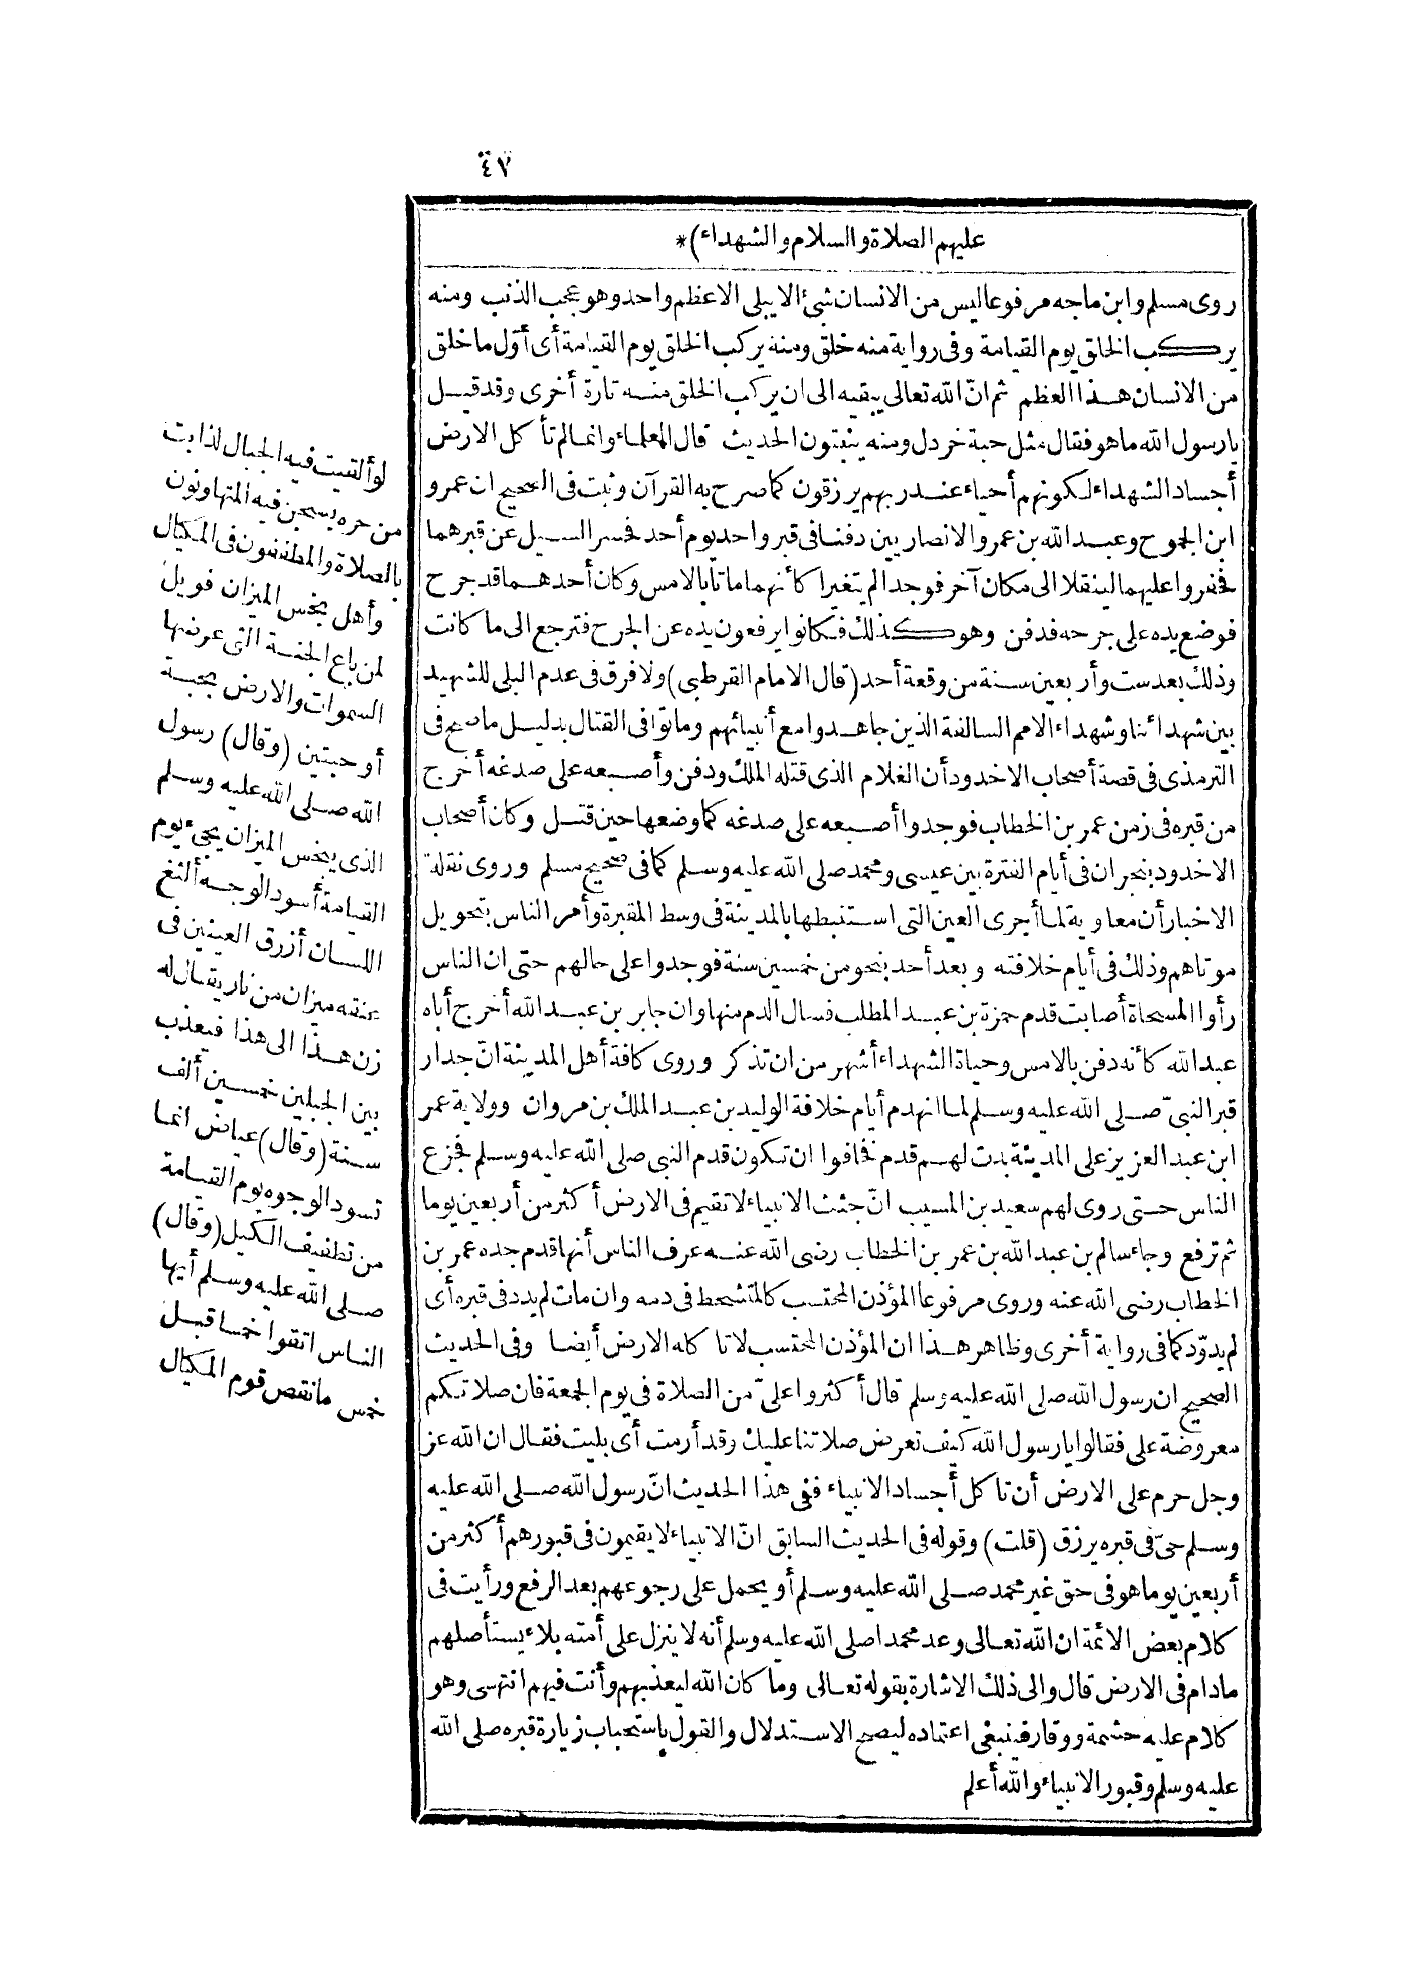 ٤٧
عليهم الصلاة والسلام والشهداء)*
روى مسلم وابن ماجه مرفوعا ليس من الانسان شئ الا يبلى الا عظم واحد وهو عجب الذنب ومنه
يركب الخلق يوم القيامة وفى رواية منه خلق ومنه يركب الخلق يوم القيامة أى أوّل ما خلق
من الانسان هذا العظم ثم انّ الله تعالى يبقيه الى ان يركب الخلق منه تارة أخرى وقد قيل
يا رسول الله ما هو فقال مثل حبة خردل ومنه ينبتون الحديث قال العلماء وانما لم تأكل الارض
أجساد الشهداء لكونهم أحياء عند ربهم يرزقون كما صرح به القرآن وثبت فى الصحيح ان عمرو
ابن الجموح وعبد الله بن عمرو الانصاريين دفنا فى قبر واحد يوم أحد فحسر السيل عن قبرهما
فحفروا عليهما لينقلا الى مكان آخر فوجدا لم يتغيرا كأنهما ماتا بالامس وكان أحدهما قد جرح
فوضع يده على جرحه فدفن وهو كذلك فكانوا يرفعون يده عن الجرح فترجع الى ما كانت
وذلك بعد ست وأربعين سنة من وقعة أحد (قال الامام القرطبى) ولا فرق فى عدم البلى للشهيد
بين شهدائنا وشهداء الامم السالفة الذين جاهدوا مع أنبيائهم وماتوا فى القتال بدليل ما صح فى
الترمذى فى قصة أصحاب الاخدود أن الغلام الذى قتله الملك ودفن وأصبعه على صدغه أخرج
من قبره فى زمن عمر بن الخطاب فوجدوا أصبعه على صدغه كما وضعها حين قتل وكان أصحاب
الاخدود بنجران فى أيام الفترة بين عيسى ومحمد صلى الله عليه وسلم كما فى صحيح مسلم وروى نقلة
الاخبار أن معاوية لما أجرى العين التى استنبطها بالمدينة فى وسط المقبرة وأمر الناس بتحويل
موتاهم وذلك فى أيام خلافته وبعد أحد بنحو من خمسين سنة فوجدوا على حالهم حتى ان الناس
رأوا المسحاة أصابت قدم حمزة بن عبد المطلب فسال الدم منها وان جابر بن عبد الله أخرج أباه
عبد الله كأنه دفن بالامس وحياة الشهداء أشهر من ان تذكر وروى كافة أهل المدينة انّ جدار
قبر النبىّ صلى الله عليه وسلم لما انهدم أيام خلافة الوليد بن عبد الملك بن مروان وولاية عمر
ابن عبد العزيز على المدينة بدت لهم قدم فخافوا ان تكون قدم النبى صلى الله عليه وسلم فجزع
الناس حتى روى لهم سعيد بن المسيب انّ جثث الانبياء لا تقيم فى الارض أكثر من أربعين يوما
ثم ترفع وجاء سالم بن عبد الله بن عمر بن الخطاب رضى الله عنه عرف الناس أنها قدم جده عمر بن
الخطاب رضى الله عنه وروى مرفوعا المؤذن المحتسب كالمتشحط فى دمه وان مات لم يدد فى قبره أى
لم يدوّد كما فى رواية أخرى وظاهر هذا ان المؤذن المحتسب لا تاكله الارض أيضا وفى الحديث
الصحيح ان رسول الله صلى الله عليه وسلم قال أكثروا علىّ من الصلاة فى يوم الجمعة فان صلاتكم
معروضة على فقالوا يا رسول الله كيف تعرض صلاتنا عليك وقد أرمت أى بليت فقال ان الله عز
وجل حرم على الارض أن تاكل أجساد الانبياء ففى هذا الحديث انّ رسول الله صلى الله عليه
وسلم حىّ فى قبره يرزق (قلت) وقوله فى الحديث السابق انّ الانبياء لا يقيمون فى قبورهم أكثر من
أربعين يوما هو فى حق غير محمد صلى الله عليه وسلم أو يحمل على رجوعهم بعد الرفع ورأيت فى
كلام بعض الائمة ان الله تعالى وعد محمدا صلى الله عليه وسلم أنه لا ينزل على أمته بلاء يستأصلهم
مادام فى الارض قال والى ذلك الاشارة بقوله تعالى وما كان الله ليعذبهم وأنت فيهم انتهى وهو
كلام عليه حشمة ووقار فينبغى اعتماده ليصح الاستدلال والقول باستحباب زيارة قبره صلى الله
عليه وسلم وقبور الانبياء والله أعلم
لو ألقيت فيه الجبال لذابت
من حره يسجن فيه المتهاونون
بالصلاة والمطففون فى المكيال
وأهل بخس الميزان فويل
لمن باع الجنة التى عرضها
السموات والارض بحبة
أو حبتين (وقال) رسول
الله صلى الله عليه وسلم
الذى يبخس الميزان يجىء يوم
القيامة أسود الوجه ألثغ
اللسان أزرق العينين فى
عنقه ميزان من نار يقال له
زن هذا الى هذا فيعذب
بين الجبلين خمسين ألف
سنة (وقال) عياض انما
تسود الوجوه يوم القيامة
من تطفيف الكيل (وقال)
صلى الله عليه وسلم أيها
الناس اتقوا خمسا قبل
خمس ما نقص قوم المكيال